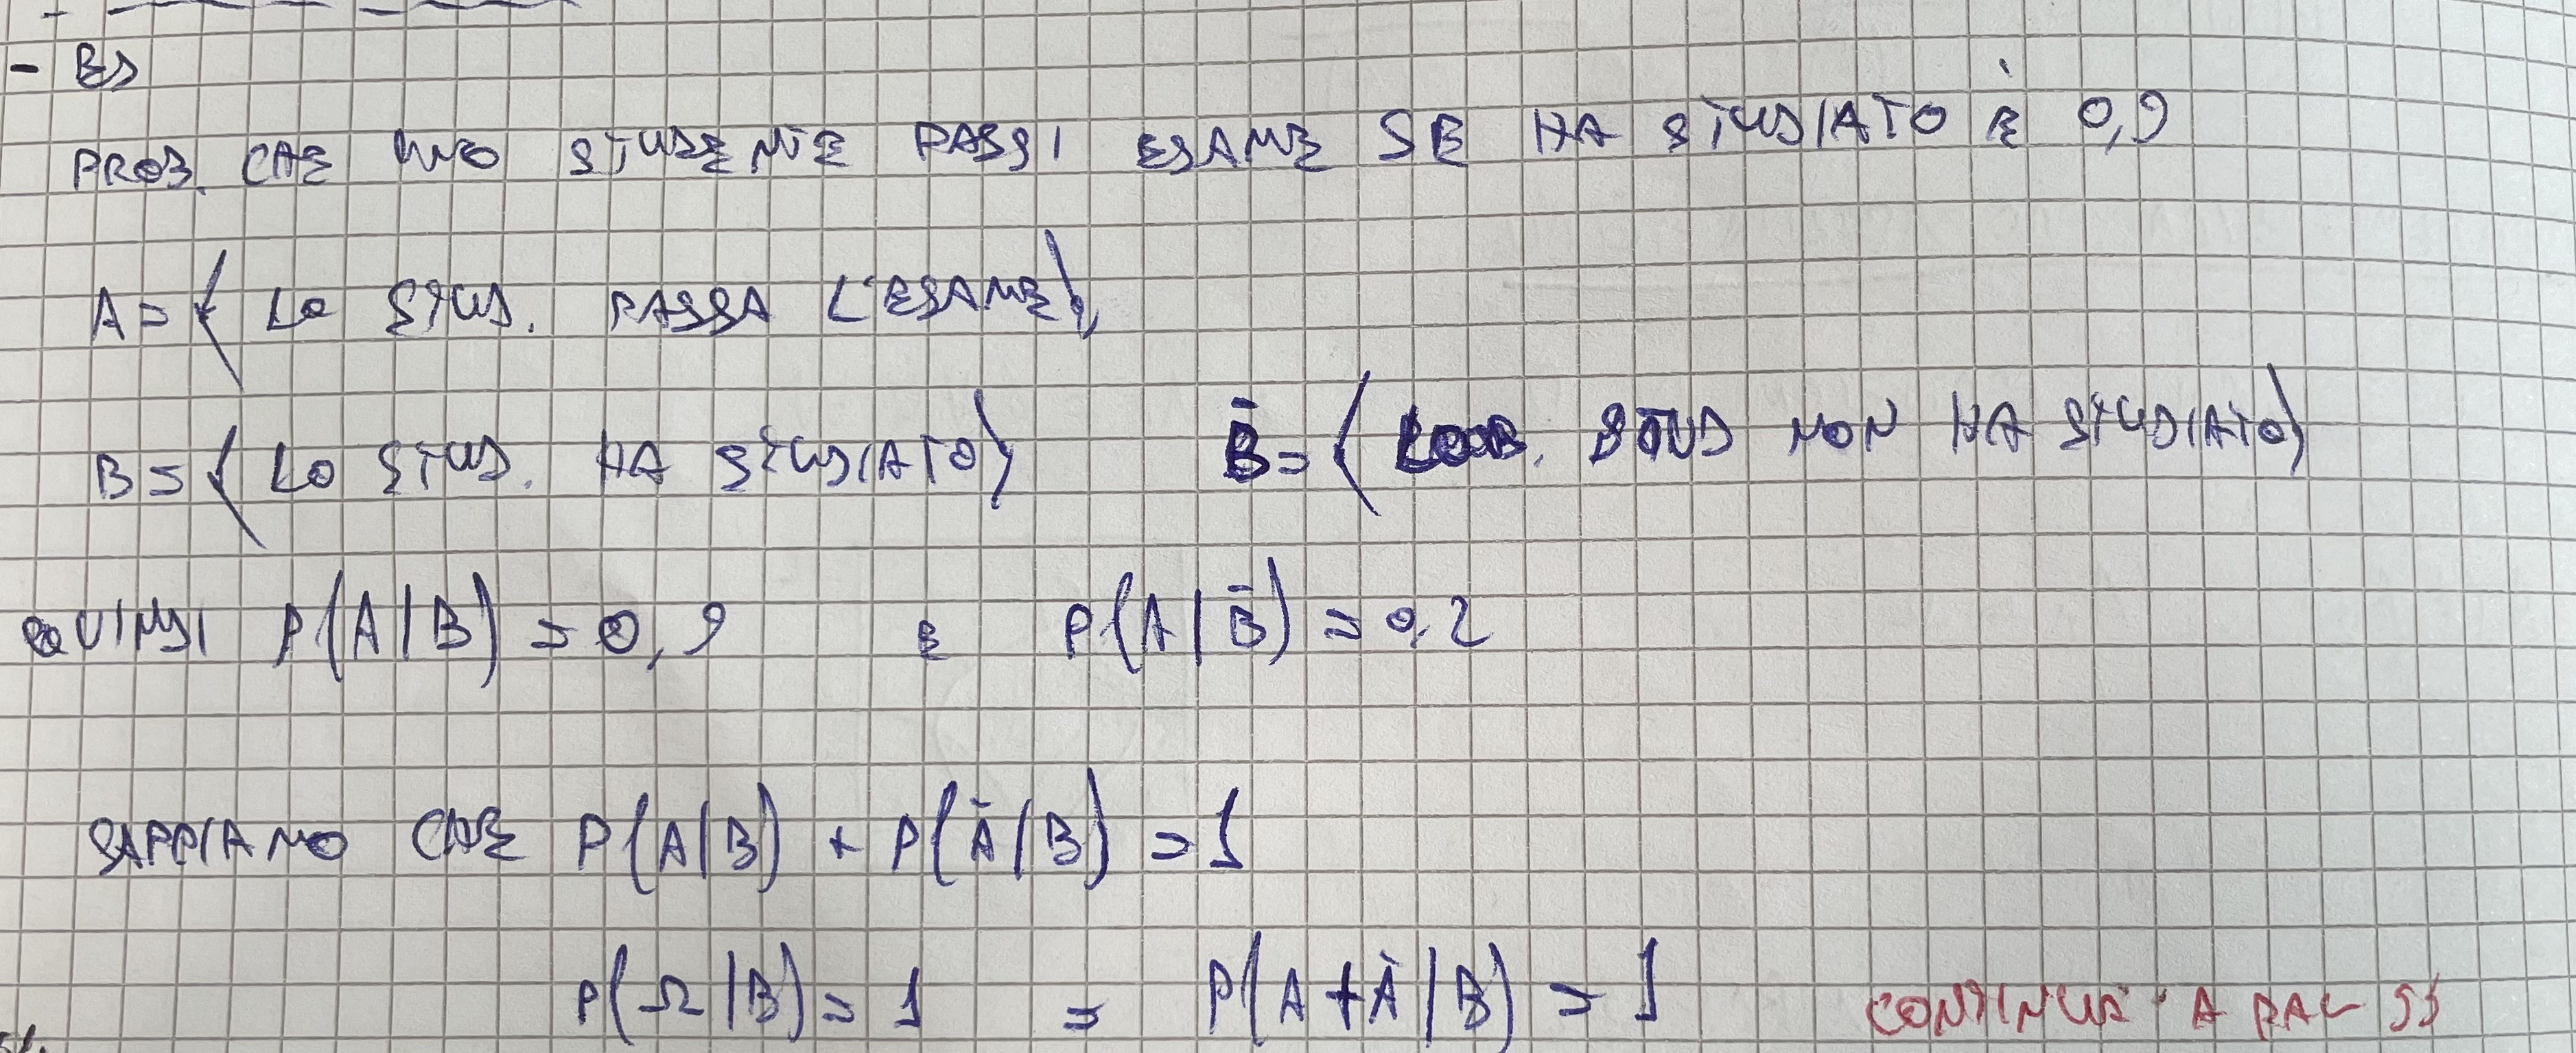 - ES
PROB. CHE UNO STUDENTE PASSI ESAME SE HA STUDIATO È 0,9
A = { LO STUD. PASSA L'ESAME },
B = { LO STUD. HA STUDIATO } B̄ = { STUD NON HA STUDIATO }
QUINDI P(A|B) = 0,9 E P(A|B̄) = 0,2
SAPPIAMO CHE P(A|B) + P(Ā|B) = 1
P(Ω|B) = 1 = P(A+Ā|B) = 1
CONTINUA A PAG